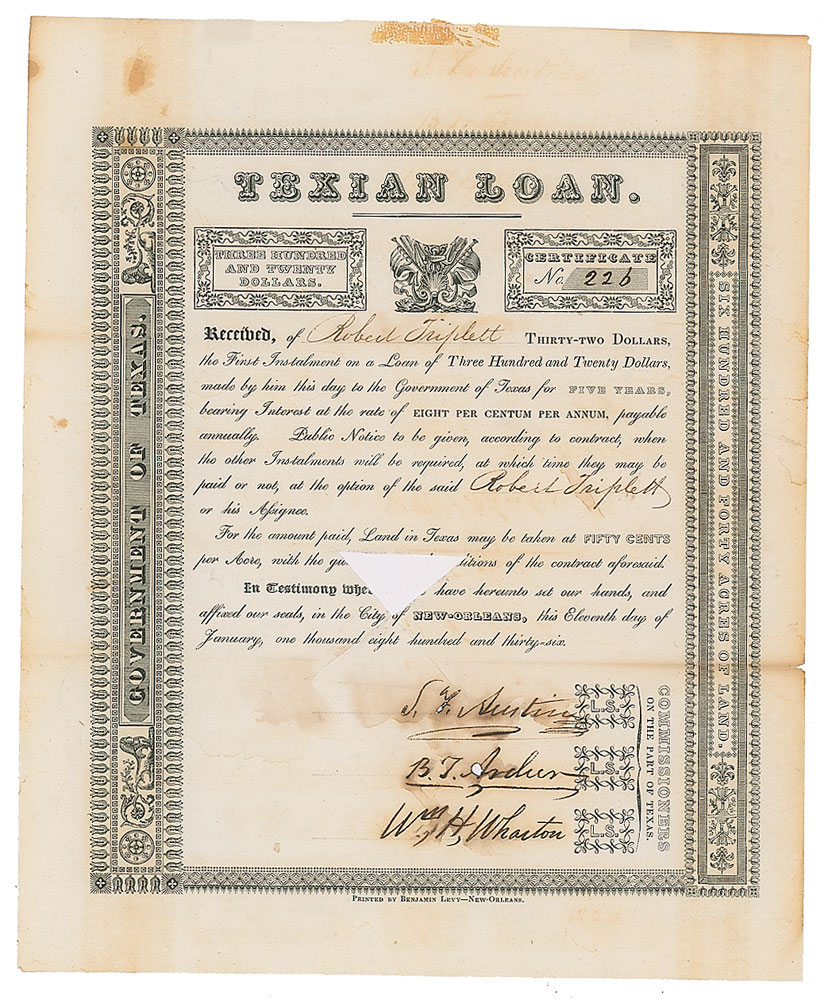 TEXIAN LOAN.
THREE HUNDRED
AND TWENTY
DOLLARS.
CERTIFICATE
No. 226
Received, of Robert Triplett THIRTY-TWO DOLLARS,
the First Instalment on a Loan of Three Hundred and Twenty Dollars,
made by him this day to the Government of Texas for FIVE YEARS,
bearing Interest at the rate of EIGHT PER CENTUM PER ANNUM, payable
annually. Public Notice to be given, according to contract, when
the other Instalments will be required, at which time they may be
paid or not, at the option of the said Robert Triplett
or his Assignee.
For the amount paid, Land in Texas may be taken at FIFTY CENTS
per Acre, with the ditions of the contract aforesaid.
In Testimony whe have hereunto set our hands, and
affixed our seals, in the City of NEW-ORLEANS, this Eleventh day of
January, one thousand eight hundred and thirty-six.
S. F. Austin L.S.
B. T. Archer L.S.
Wm H. Wharton L.S.
COMMISSIONERS
ON THE PART OF TEXAS.
GOVERNMENT OF TEXAS.
SIX HUNDRED AND FORTY ACRES OF LAND.
PRINTED BY BENJAMIN LEVY—NEW-ORLEANS.